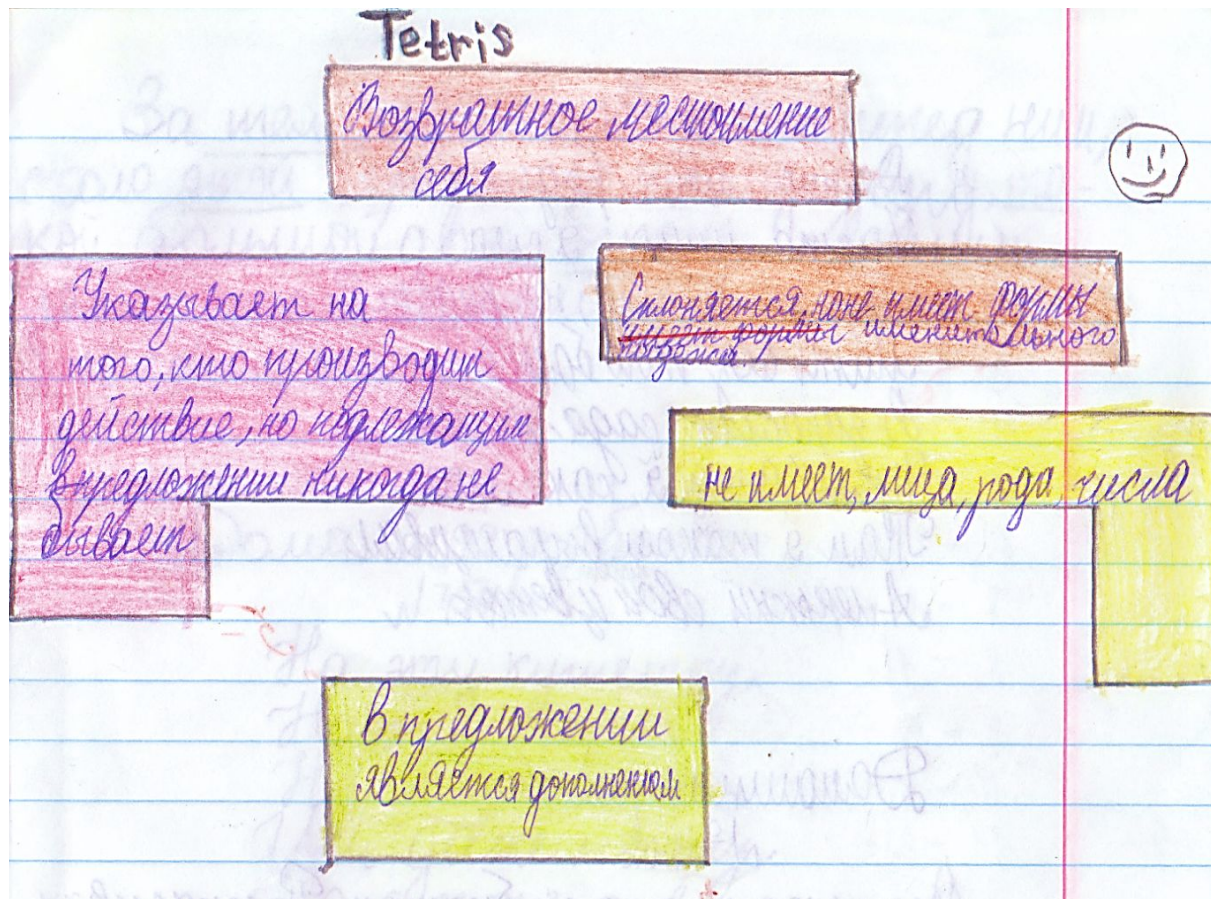 Tetris
Возвратное местоимение
себя
Указывает на
того, кто производит
действие, но подлежащим
в предложении никогда не
бывает
Склоняется, но не имеет формы
имеет формы именительного
падежа.
не имеет, лица, рода, числа
В предложении
является дополнением